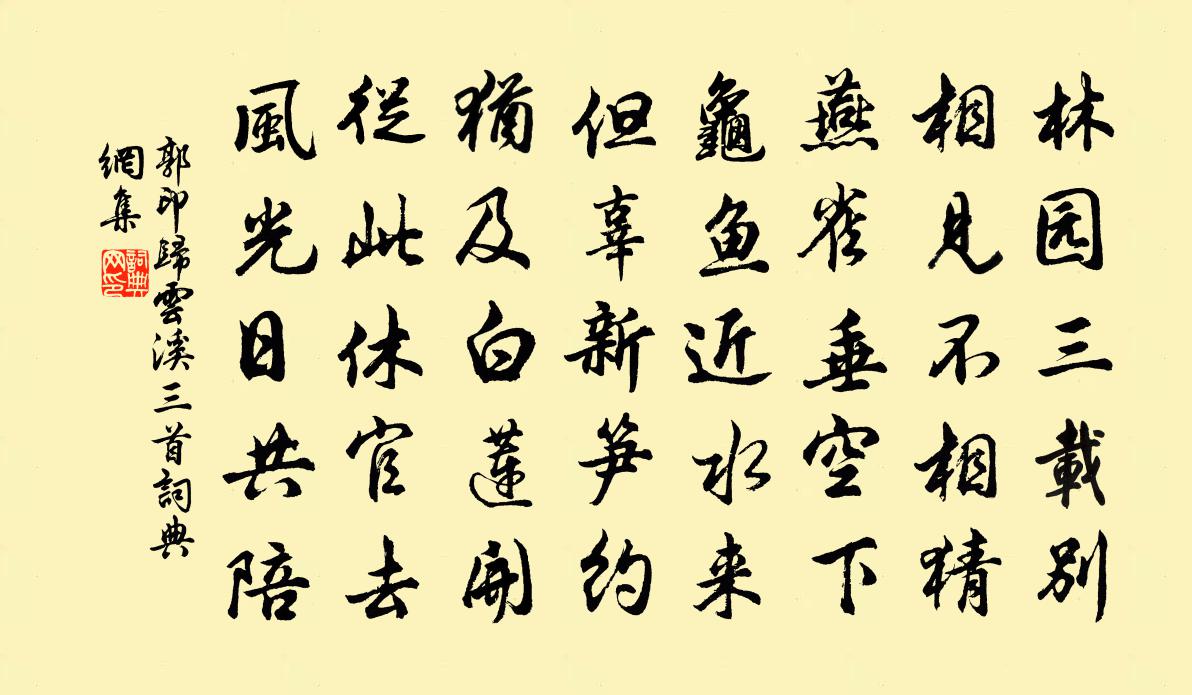 林园三載别
相見不相猜
燕雀垂空下
龜鱼近水来
但辜新笋约
猶及白蓮開
從此休官去
風光日共陪
郭印歸雲溪三首詞典
網集
詞典
网印